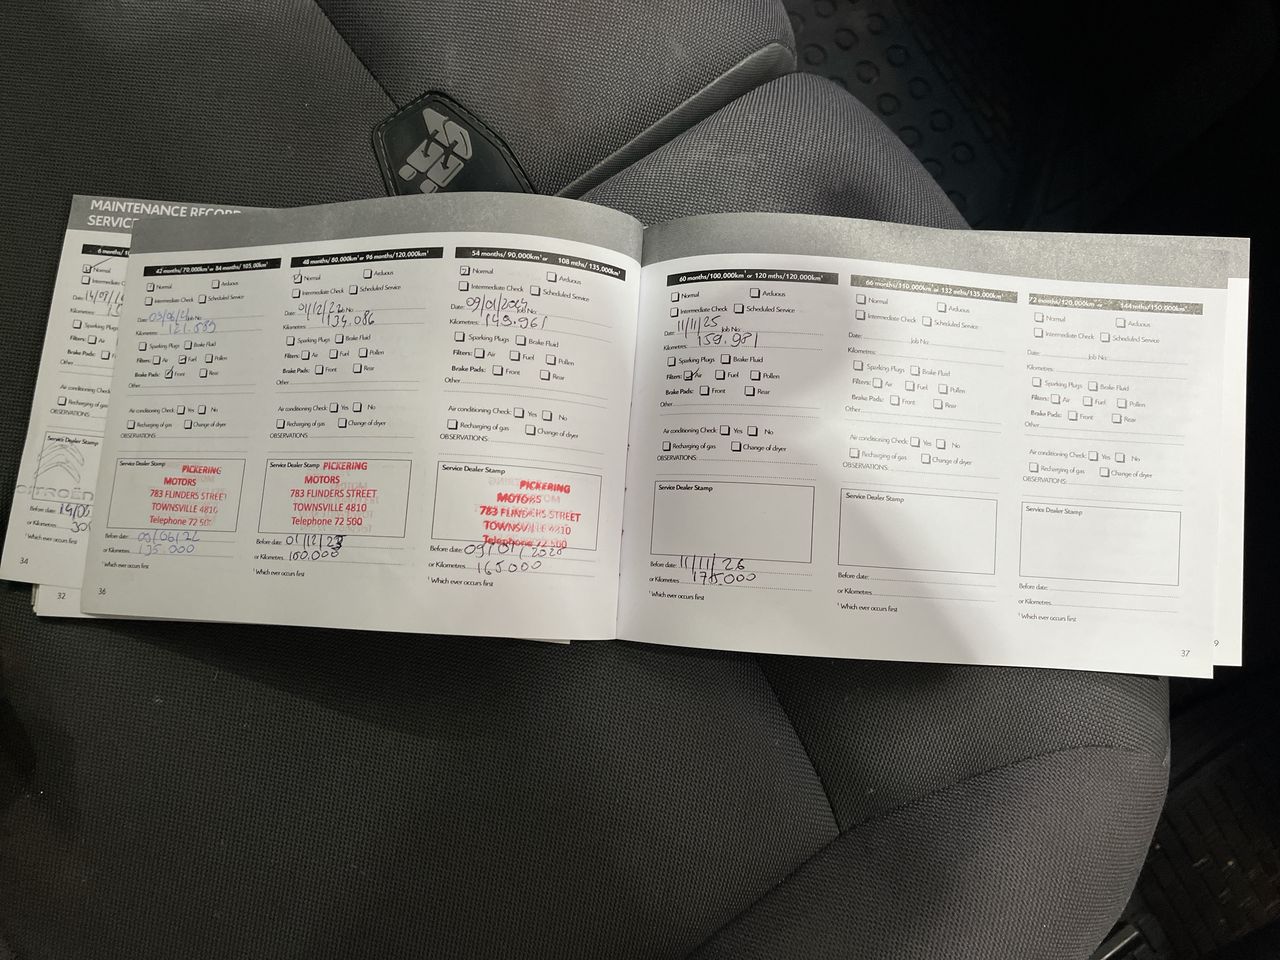 MAINTENANCE RECORD
SERVICE
Normal
Intermediate Check
Date:
Kilometres:
Sparking Plugs
Filters: Air
Brake Pads:
Other
Air conditioning Check
Recharging of gas
OBSERVATIONS:
Service Dealer Stamp
CITROËN
Before date:
or Kilometres
¹ Which ever occurs first
34
32
42 months/70,000km¹ or 84 months/105,000km¹
Normal Arduous
Intermediate Check Scheduled Service
Date: Job No:
Kilometres: 121.689
Sparking Plugs Brake Fluid
Filters: Air Fuel Pollen
Brake Pads: Front Rear
Other
Air conditioning Check: Yes No
Recharging of gas Change of dryer
OBSERVATIONS:
Service Dealer Stamp
PICKERING
MOTORS
783 FLINDERS STREET
TOWNSVILLE 4810
Telephone 72 500
Before date: 03/06/22
or Kilometres 135.000
¹ Which ever occurs first
36
48 months/ 80,000km¹ or 96 months/120,000km¹
Normal Arduous
Intermediate Check Scheduled Service
Date: 01/12/22 Job No:
Kilometres: 134.086
Sparking Plugs Brake Fluid
Filters: Air Fuel Pollen
Brake Pads: Front Rear
Other
Air conditioning Check: Yes No
Recharging of gas Change of dryer
OBSERVATIONS:
Service Dealer Stamp
PICKERING
MOTORS
783 FLINDERS STREET
TOWNSVILLE 4810
Telephone 72 500
Before date: 01/12/23
or Kilometres
¹ Which ever occurs first
54 months/ 90,000km¹ or 108 mths/ 135,000km¹
Normal Arduous
Intermediate Check Scheduled Service
Date: 09/01/2024 Job No:
Kilometres: 149.961
Sparking Plugs Brake Fluid
Filters: Air Fuel Pollen
Brake Pads: Front Rear
Other
Air conditioning Check: Yes No
Recharging of gas Change of dryer
OBSERVATIONS:
Service Dealer Stamp
PICKERING
MOTORS
783 FLINDERS STREET
TOWNSVILLE 4810
Telephone 72 500
Before date: 09/01/2025
or Kilometres 165.000
¹ Which ever occurs first
60 months/100,000km¹ or 120 mths/120,000km¹
Normal Arduous
Intermediate Check Scheduled Service
Date: 11/11/25 Job No:
Kilometres: 159.981
Sparking Plugs Brake Fluid
Filters: Air Fuel Pollen
Brake Pads: Front Rear
Other
Air conditioning Check: Yes No
Recharging of gas Change of dryer
OBSERVATIONS:
Service Dealer Stamp
Before date: 11/11/26
or Kilometres 175.000
¹ Which ever occurs first
66 months/110,000km¹ or 132 mths/135,000km¹
Normal Arduous
Intermediate Check Scheduled Service
Date: Job No:
Kilometres:
Sparking Plugs Brake Fluid
Filters: Air Fuel Pollen
Brake Pads: Front Rear
Other
Air conditioning Check: Yes No
Recharging of gas Change of dryer
OBSERVATIONS:
Service Dealer Stamp
Before date:
or Kilometres
¹ Which ever occurs first
72 months/120,000km¹ or 144mths/150,000km¹
Normal Arduous
Intermediate Check Scheduled Service
Date: Job No:
Kilometres:
Sparking Plugs Brake Fluid
Filters: Air Fuel Pollen
Brake Pads: Front Rear
Other
Air conditioning Check: Yes No
Recharging of gas Change of dryer
OBSERVATIONS:
Service Dealer Stamp
Before date:
or Kilometres
¹ Which ever occurs first
37
9